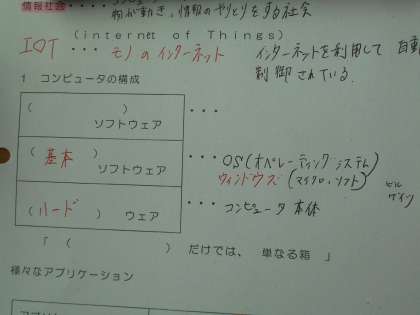 情報社会
物が動き、情報のやりとりをする社会
(internet of Things)
IOT ････ モノのインターネット インターネットを利用して 自動
制御されている
1 コンピュータの構成
( ) ･･･
ソフトウェア
( 基本 ) ･･･ OS(オペレーティングシステム)
ソフトウェア ウィンドウズ(マイクロソフト) ビル
ゲイツ
( ハード ) ウェア ･･･ コンピュータ本体
「 ( ) だけでは、 単なる箱 」
様々なアプリケーション